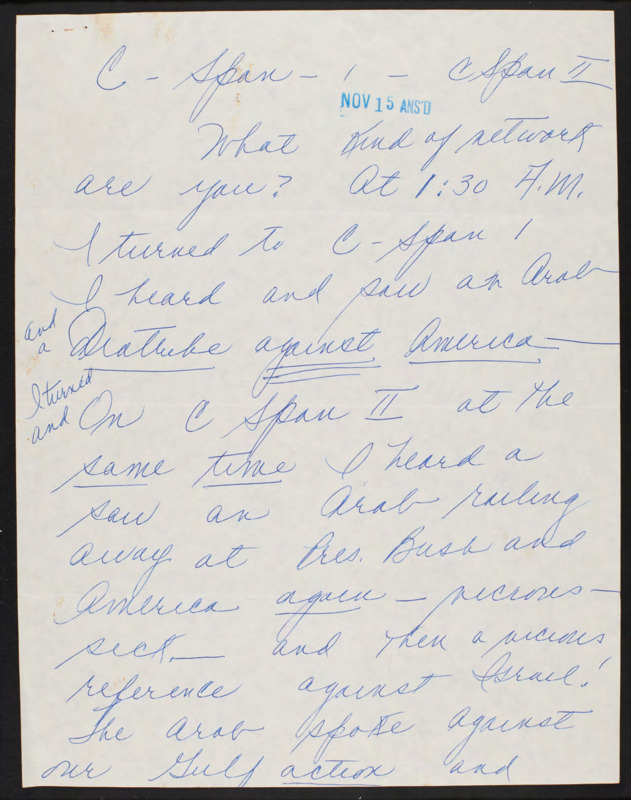 C - Span - 1 - C Span II
NOV 15 ANS'D
What kind of network
are you? At 1:30 A.M.
I turned to C - Span 1
I heard and saw an Arab
and
a
Diatribe against America —
I turned
and
On C Span II at the
same time I heard a
saw an Arab railing
away at Pres. Bush and
America again — vicious —
sick — and then a vicious
reference against Israel!
The Arab spoke against
our Gulf action and